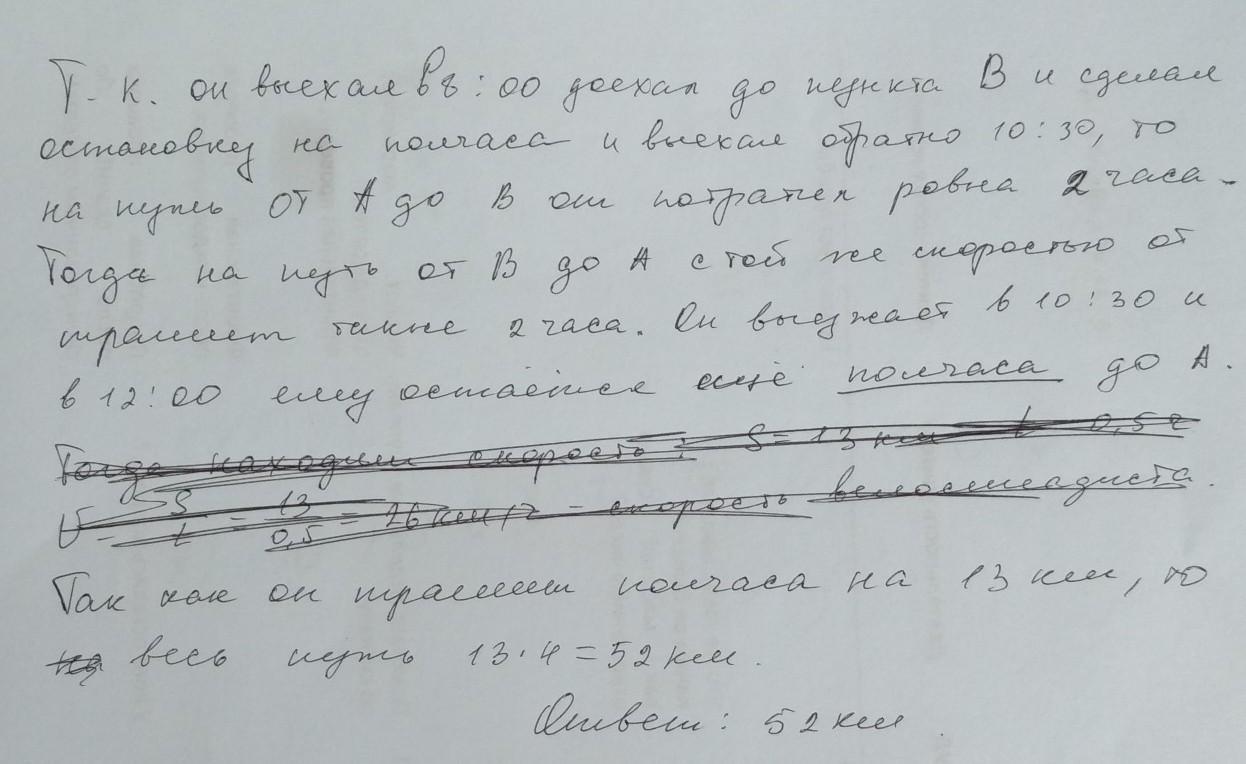 Т. к. он выехал в 8:00 доехал до пункта В и сделал
остановку на полчаса и выехал обратно 10:30, то
на путь от А до В он потратил ровна 2 часа.
Тогда на путь от В до А с той же скоростью от
тратит также 2 часа. Он выезжает в 10:30 и
в 12:00 ему остаётся ещё полчаса до А.
Тогда находим скорость: S = 13 км t = 0,5 ч
V = S/t = 13/0,5 = 26 км/ч – скорость велосипедиста.
Так как он тратит полчаса на 13 км, то
на весь путь 13·4=52 км.
Ответ: 52 км